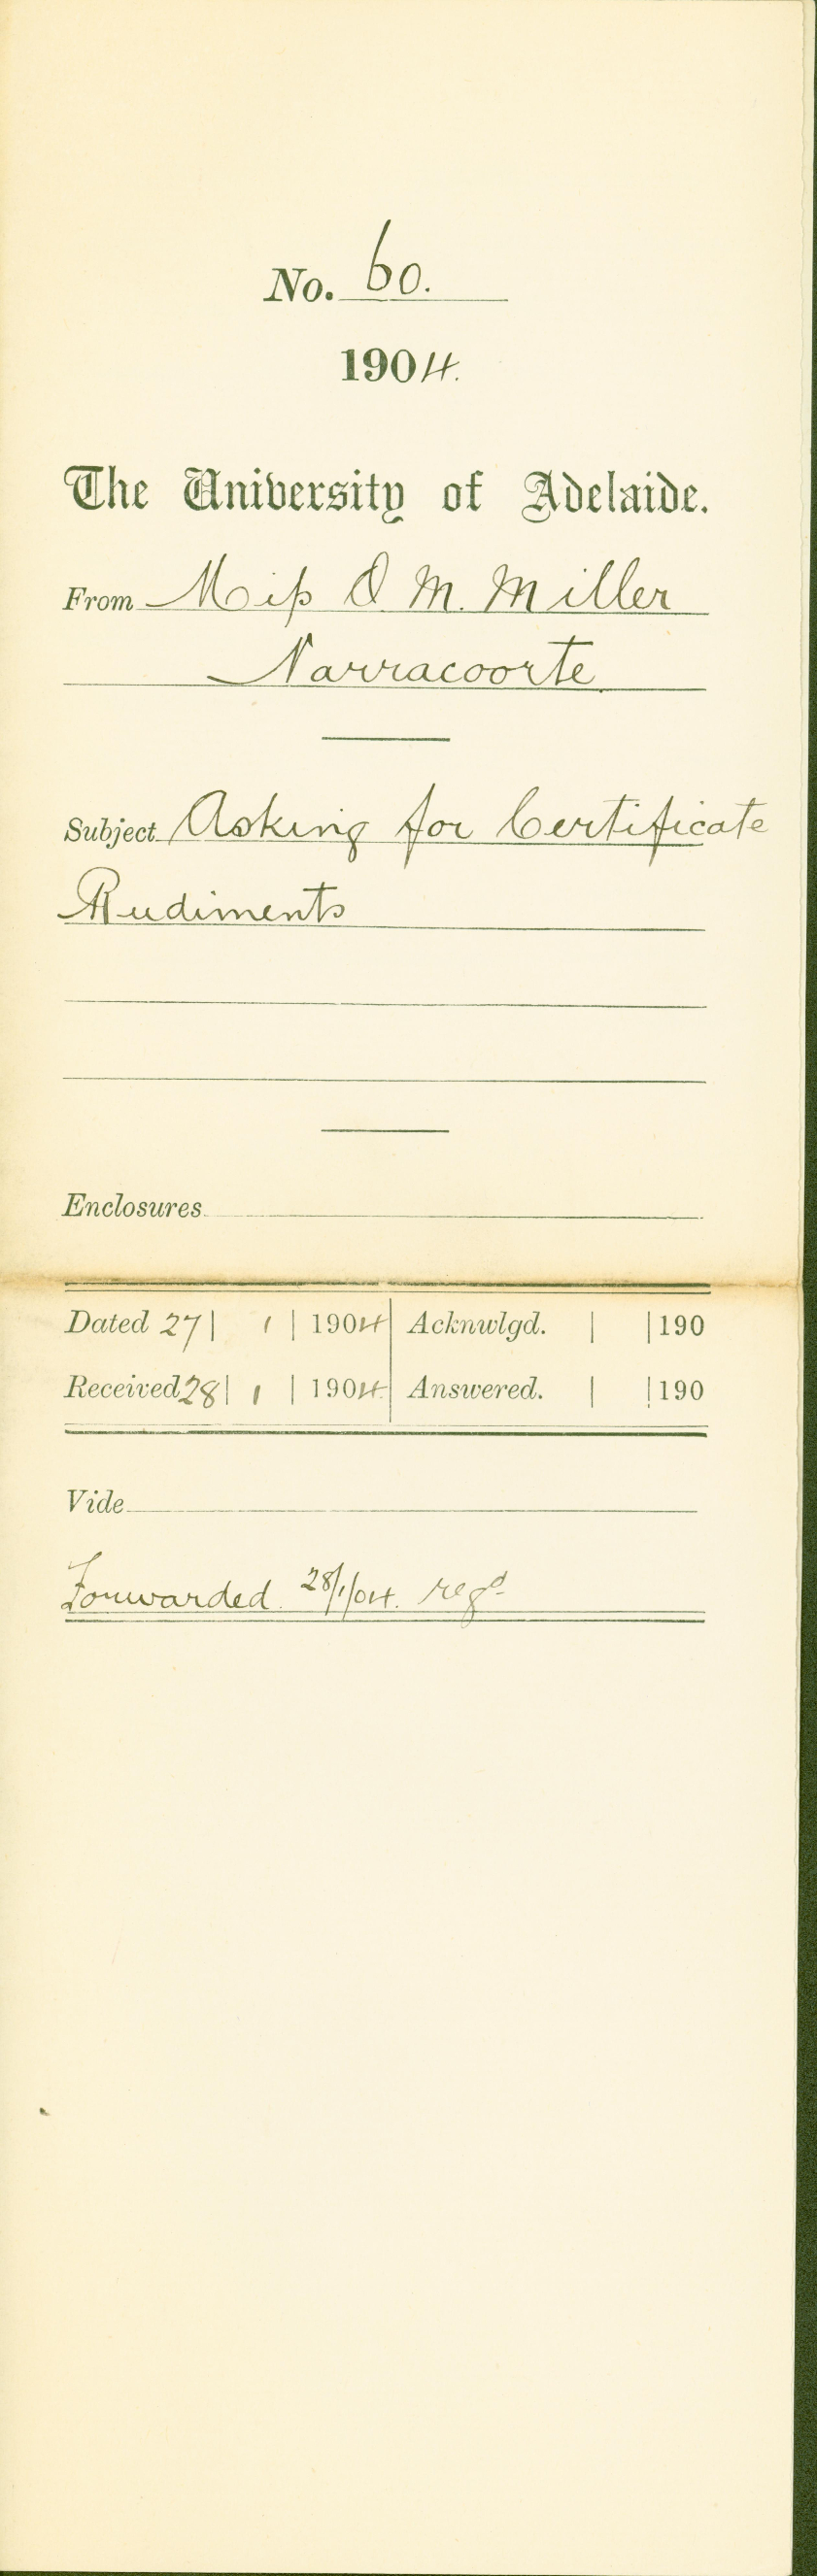 No. 60.
1904.
The University of Adelaide.
From Miss O M. Miller
Narracoorte
Subject Asking for Certificate
Rudiments
Enclosures
Dated 27 | 1 | 1904 Acknwlgd. | | 190
Received 28 | 1 | 1904 Answered. | | 190
Vide
Forwarded 28/1/04. regd.